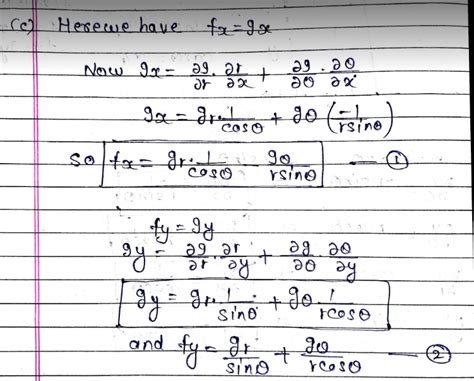 (c) Herewe have fx = gx
Now gx = ∂g/∂r · ∂r/∂x + ∂g/∂θ · ∂θ/∂x
gx = gr · 1/cosθ + gθ (-1/rsinθ)
so fx = gr · 1/cosθ - gθ/rsinθ — ①
fy = gy
gy = ∂g/∂r · ∂r/∂y + ∂g/∂θ · ∂θ/∂y
gy = gr · 1/sinθ + gθ · 1/rcosθ
and fy = gr/sinθ + gθ/rcosθ — ②